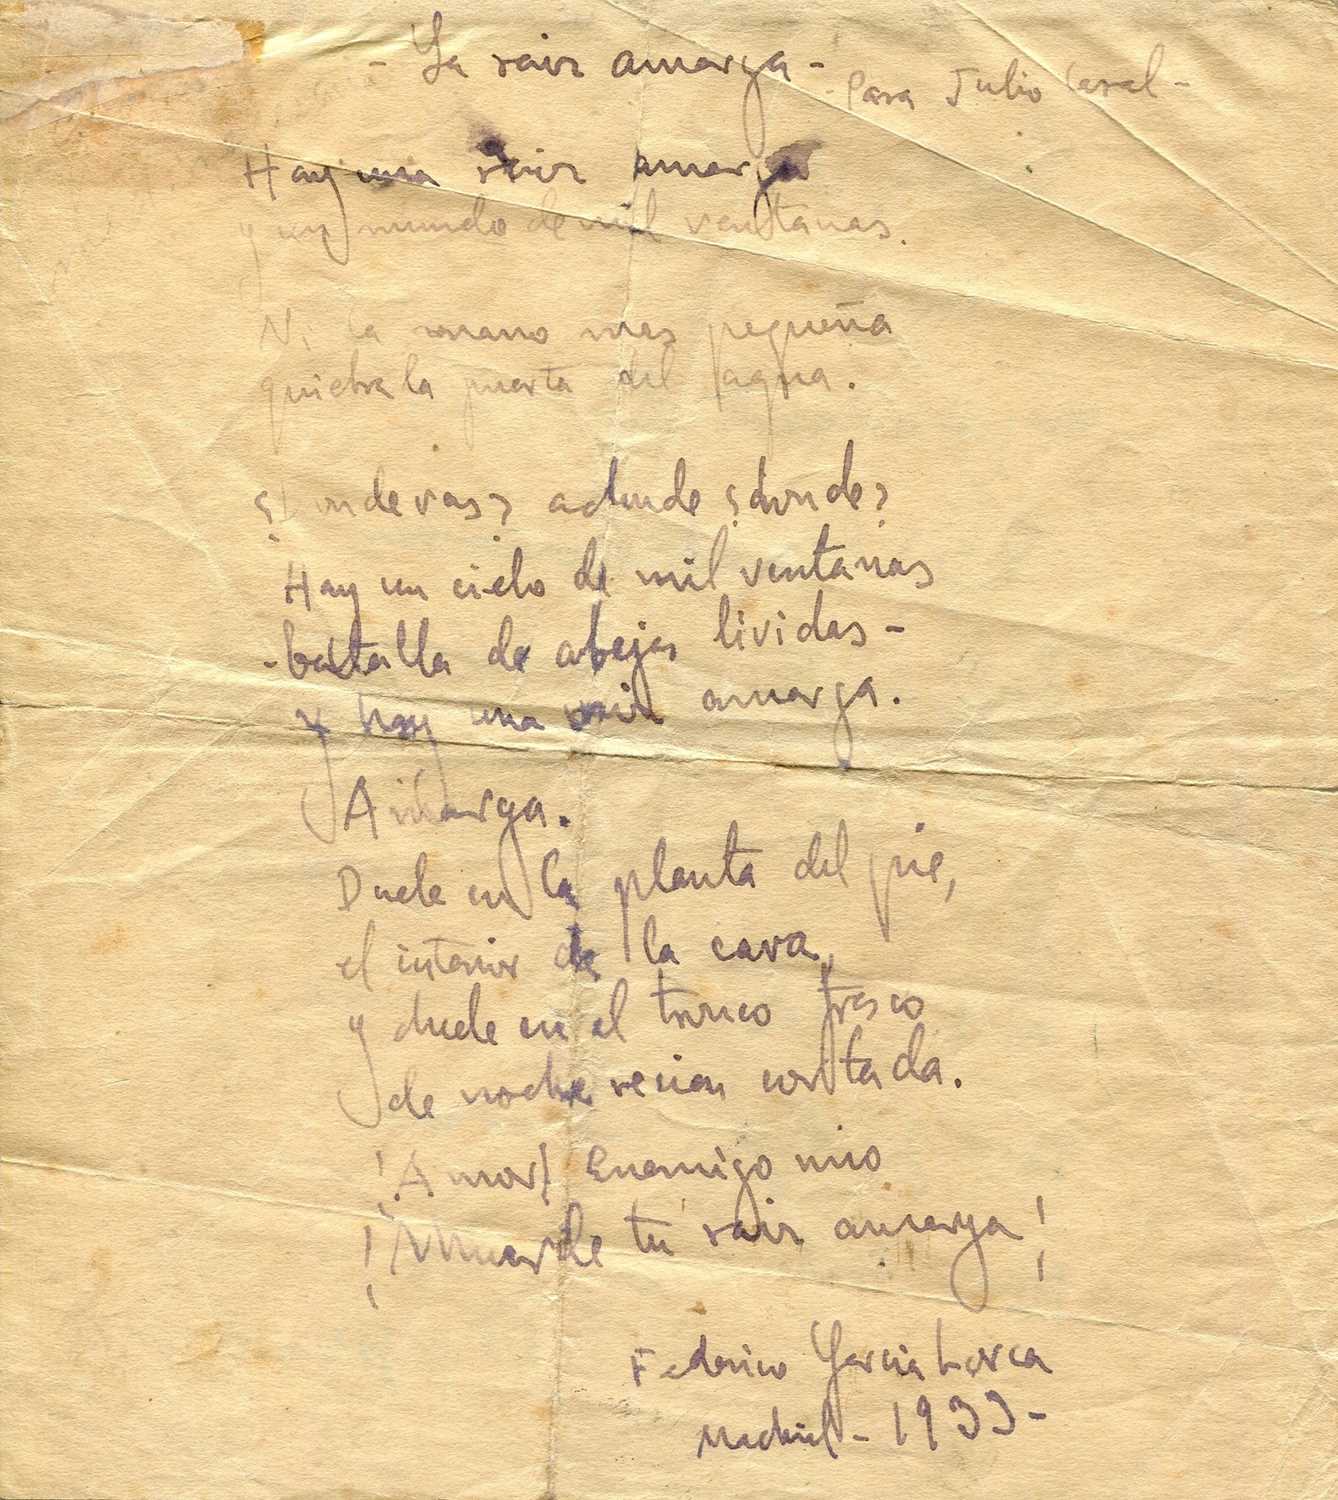 - La raiz amarga -
Para Julio Casal -
Hay una raiz amarga
y un mundo de mil ventanas.
Ni la mano mas pequeña
quiebra la puerta del agua.
¿Donde vas? adonde ¿donde?
Hay un cielo de mil ventanas
- batalla de abejas lividas -
y hay una raiz amarga.
Amarga.
Duele en la planta del pie,
el interior de la cara,
y duele en el tronco fresco
de noche recien cortada.
¡Amor! Enemigo mio
¡Muerde tu raiz amarga!
Federico García Lorca
Madrid - 1933 -